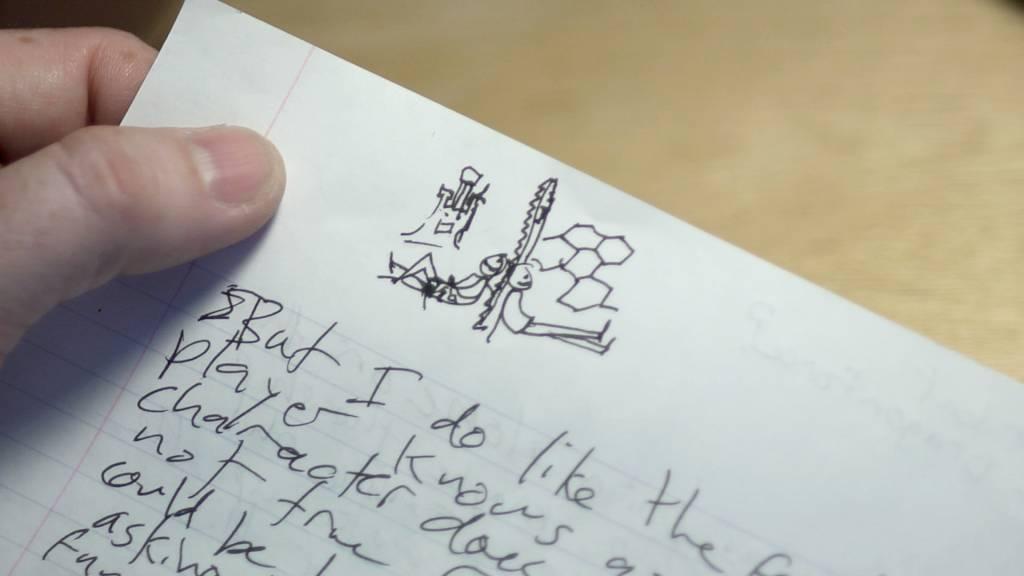 But I do like the
player knows
character does
not
could be
asking